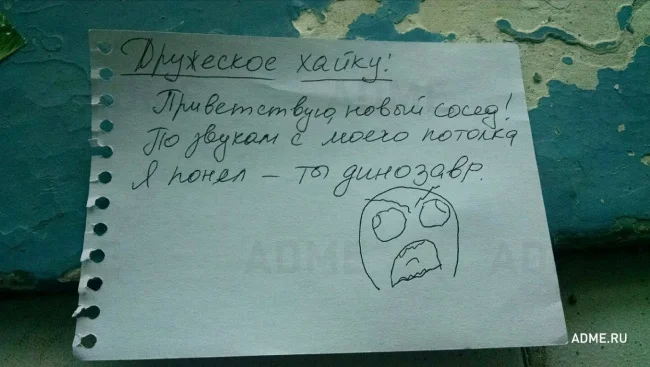 Дружеское хайку:
Приветствую, новый сосед!
По звукам с моего потолка
Я понел – ты динозавр.
ADME.RU